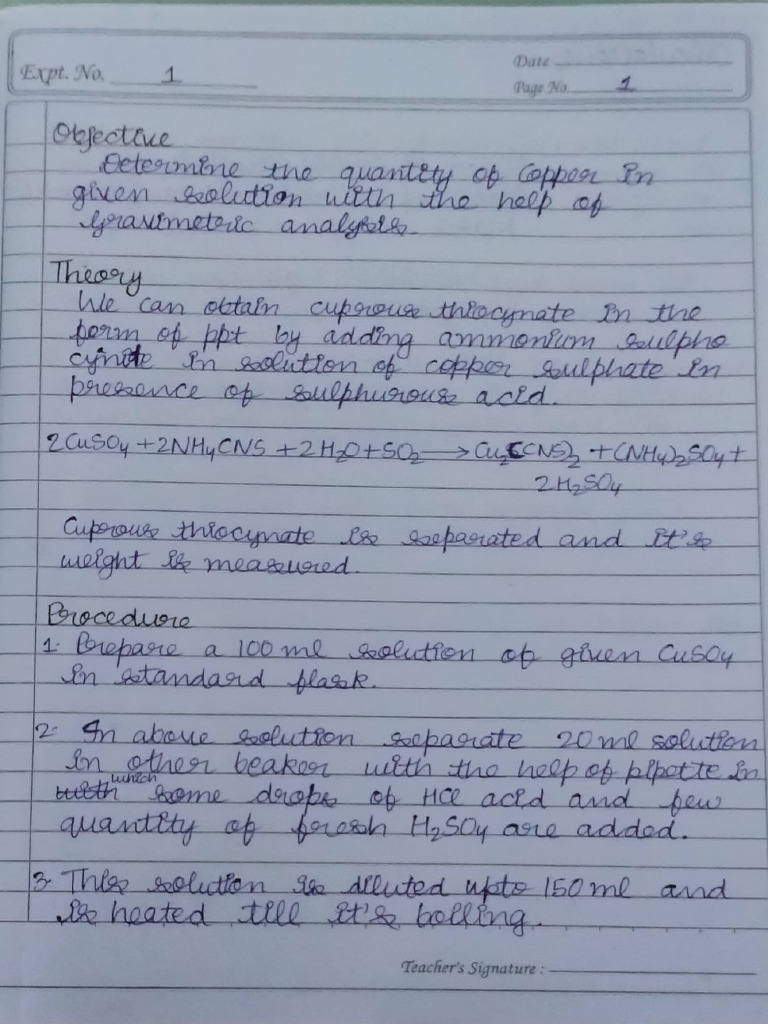 Expt. No. 1
Date
Page No. 1
Objective
Determine the quantity of Copper in
given solution with the help of
Gravimetric analysis.
Theory
We can obtain cuprous thiocynate in the
form of ppt by adding ammonium sulpho
cynate in solution of copper sulphate in
presence of sulphurous acid.
2CuSO4 + 2NH4CNS + 2H2O + SO2 → Cu2(CNS)2 + (NH4)2SO4 +
2H2SO4
Cuprous thiocynate is separated and it's
weight is measured.
Procedure
1. Prepare a 100 ml solution of given CuSO4
in standard flask.
2. In above solution separate 20 ml solution
in other beaker with the help of pipette in
which some drops of HCl acid and few
quantity of fresh H2SO4 are added.
3. This solution is diluted upto 150 ml and
is heated till it's boiling.
Teacher's Signature :